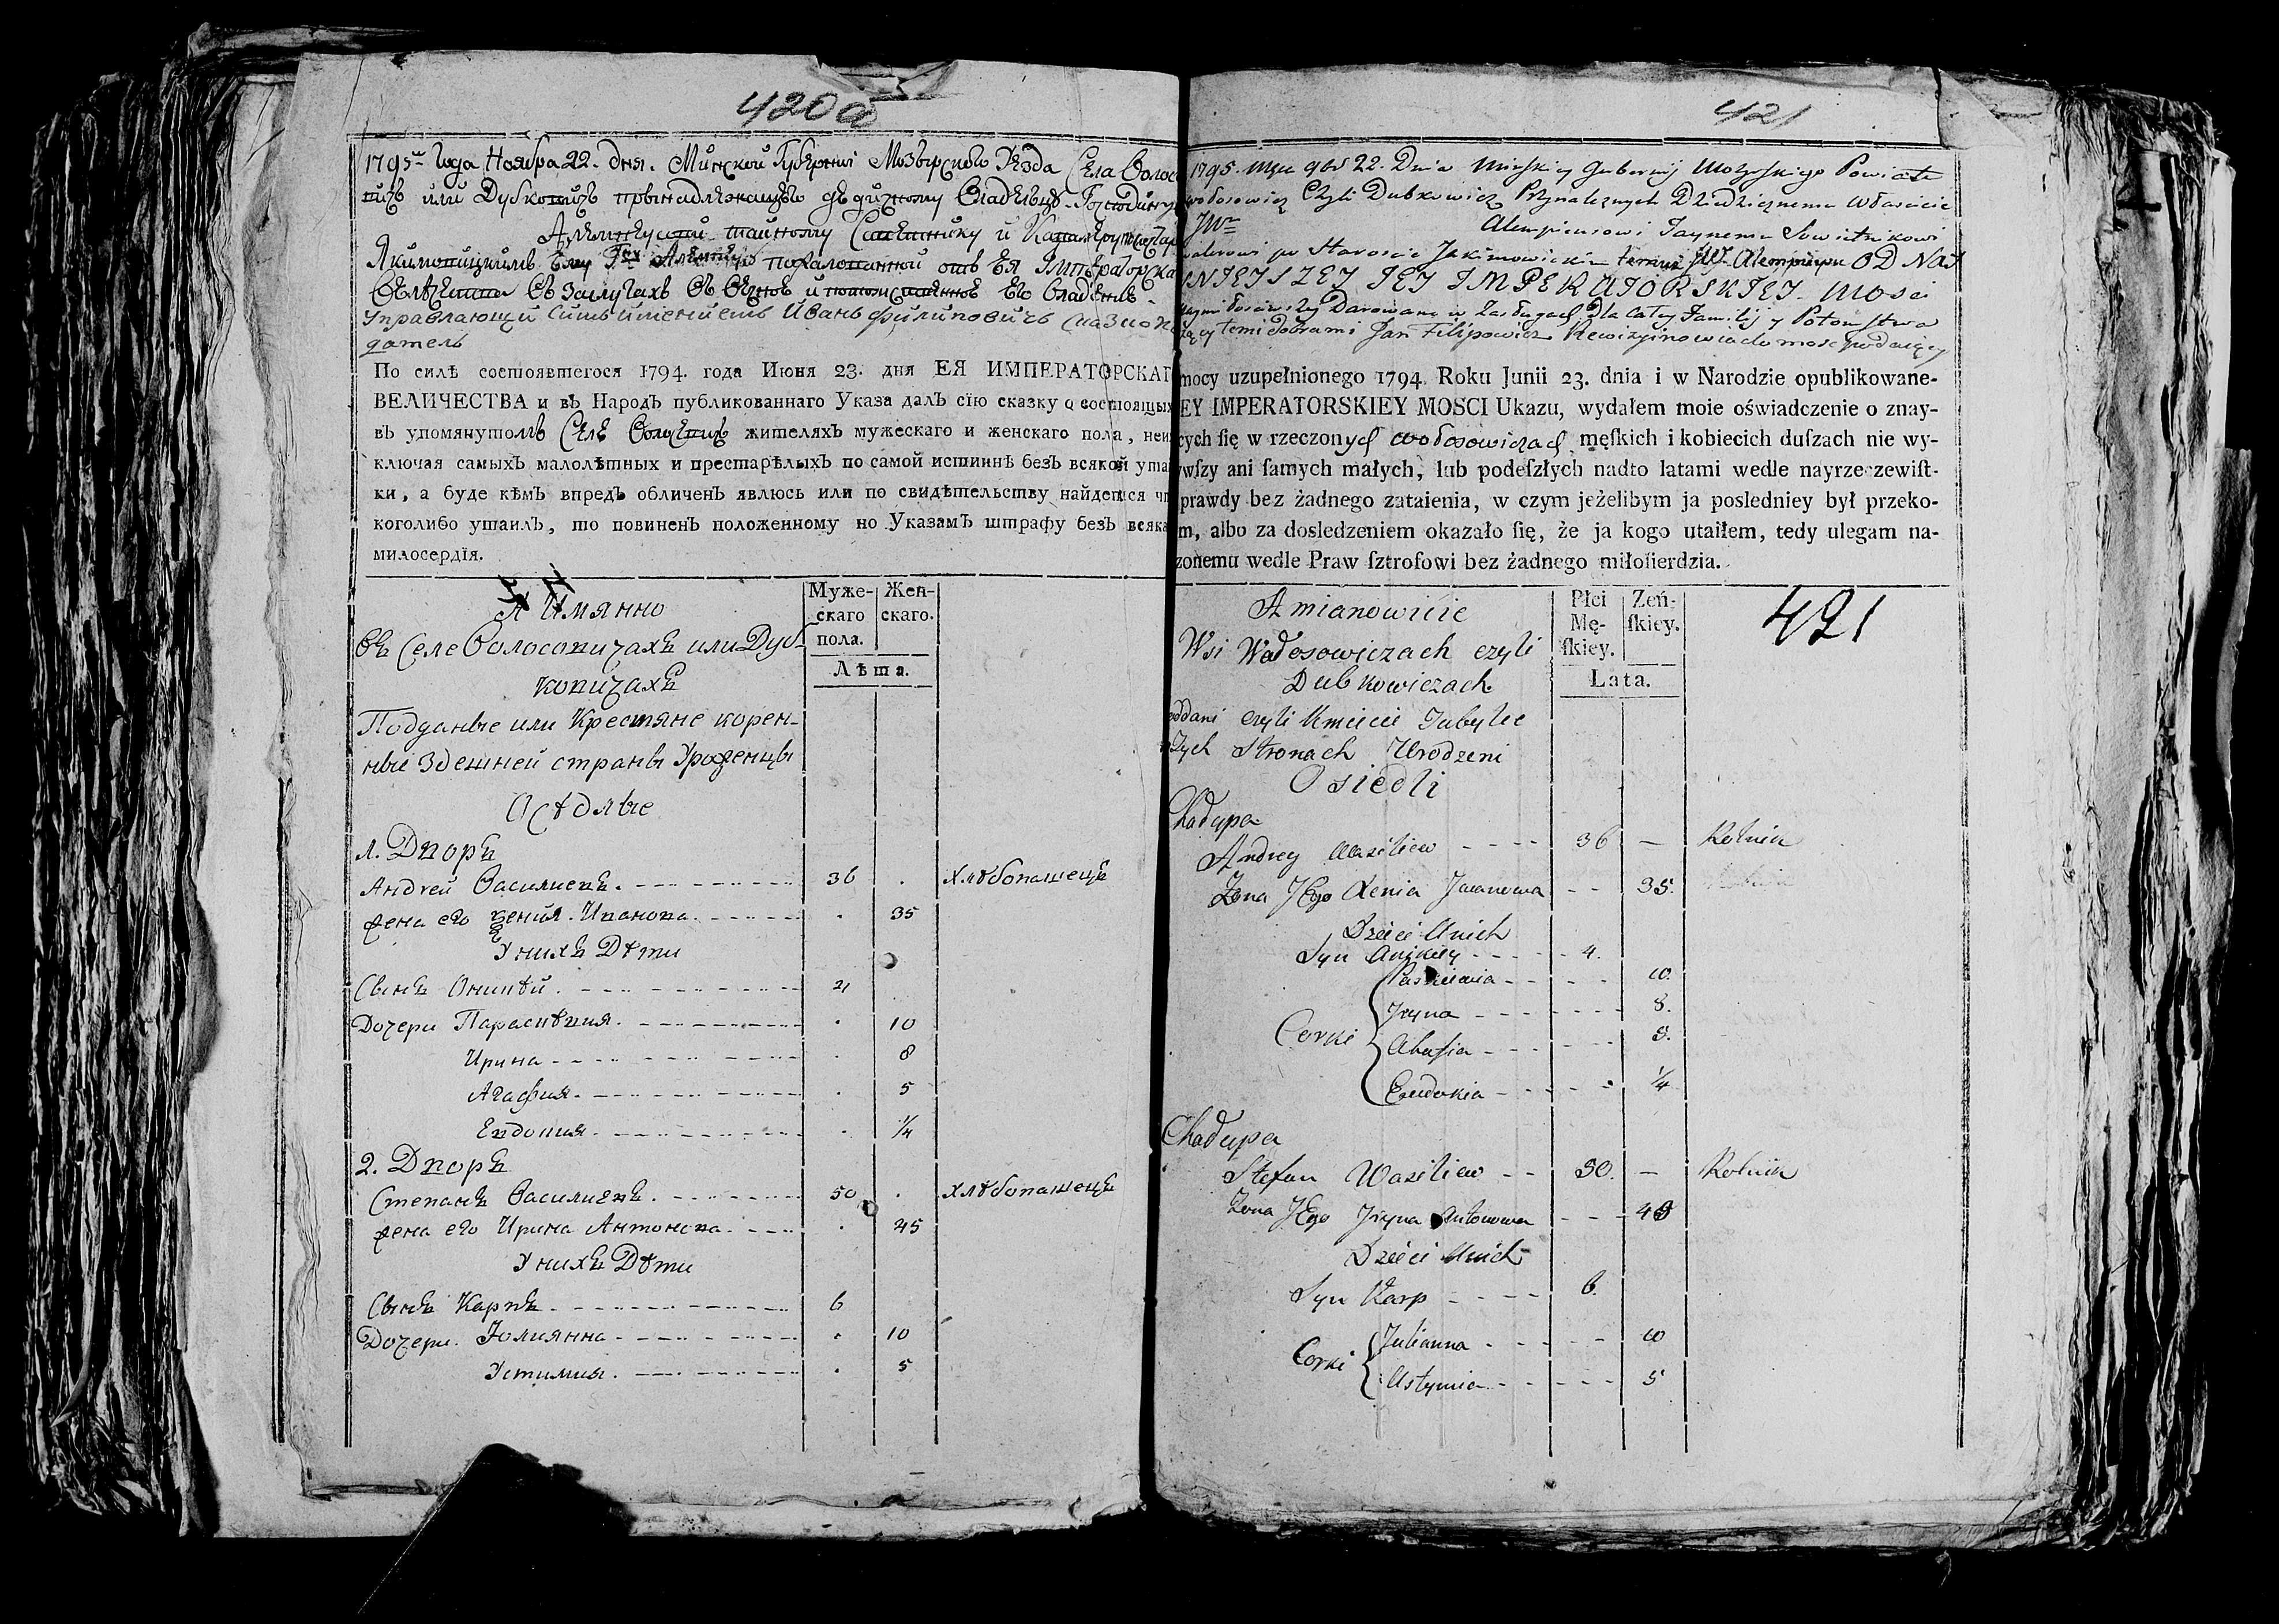 420а
1795 года Ноября 22. дня. Минской Губернии Мозырского Уезда Села Волос
или Дубковичъ принадлежащего дедичному Владельцу Господину
тайному Советнику и
Якимовицкимъ Ему пожалованной отъ Ея Императорска
въ Заслугахъ въ Вечное и потомственное Его Владение
Управляющий симъ имениемъ Иванъ Филиповичъ
датель
По силѣ состоявшегося 1794. года Июня 23. дня ЕЯ ИМПЕРАТОРСКАГ
ВЕЛИЧЕСТВА и въ Народъ публикованнаго Указа далъ сїю сказку о состоящых
въ упомянутомъ Селе жителяхъ мужескаго и женскаго пола, неис
ключая самыхъ малолѣтныхъ и престарѣлыхъ по самой истиннѣ безъ всякой ута
ки, а буде кѣмъ впредь обличенъ явлюсь или по свидѣтельству найдется чт
коголибо утаилъ, то повиненъ положенному по Указамъ штрафу безъ всяка
милосердїя.
А Имянно
Въ Селе Волосовичахъ или Дуб-
ковичахъ
Подданые или Крестяне корен-
ные Здешней страны Уроженцы
Осѣдлые
Муже-
скаго
пола.
Жен-
скаго.
Лѣта.
1. Дворъ
Андрей Василиевъ. 36 . хлѣбопашецъ
жена его Ксения Иванова. . 35
У нихъ Дѣти
Сынъ Оникѣй. 4
Дочери Парасковия. . 10
Ирина . 8
Агафия. . 5
Евдокия. . 1/4
2. Дворъ
Степанъ Василиевъ. 50 . хлѣбопашецъ
жена его Ирина Антонова. . 45
У нихъ Дѣти
Сынъ Карпъ. 6
Дочери. Юлиянна . 10
Устимия. . 5
421
1795. Msca 9br 22. Dnia Minskiey Gubernij Mozyrskiego Powiatu
wołosowicz Czyli Dubkowicz Przynaleznych Dziedzicznemu Włascicie
JWu Alempiusowi Taynemu Sowietnikowi
walerowi po Staroscie Jakimowickim teraz JW. OD NAJ
SNIEJSZEJ JEJ IMPERATORSKIEJ Mosci
Darowane w Zasługach dla Całey Familij y Potomstwa
temi dobrami Jan Filipowicz wiadomosc podaięcy
mocy uzupełnionego 1794 Roku Junii 23. dnia i w Narodzie opublikowane-
EY IMPERATORSKIEY MOSCI Ukazu, wydałem moie oświadczenie o znay-
cych ſię w rzeczonych wołosowiczach męſkich i kobiecich duſzach nie wy-
wſzy ani ſamych małych, lub podeſzłych nadto latami wedle nayrzeczewiſt-
prawdy bez żadnego zataienia, w czym jeżelibym ja posledniey był przeko-
m, albo za dosledzeniem okazało ſię, że ja kogo utaiłem, tedy ulegam na-
zonemu wedle Praw ſztrofowi bez żadnego miłoſierdzia.
A mianowicie
Wsi Wołosowiczach czyli
Dubkowiczach
oddani czyli Kmiecie Tubylce
Stronach Urodzeni
Osiedli
Płci
Mę-
ſkiey.
Zeń-
ſkiey.
Lata.
421
Chałupa
Andrey Wasiliew 36 — Rolnik
Żona Jego Xenia Iwanowa 35.
Dzieci Unich
Syn Anikiey 4.
Corki
Paskiewia 10.
Iryna 8.
Ahafia 5.
Eudokia 1/4
Chałupa
Stefan Wasiliew 50. — Rolnik
Żona Jego Iryna Antonowa 45
Dzieci Unich
Syn Karp 6.
Corki
Julianna 10
Ustymia 5